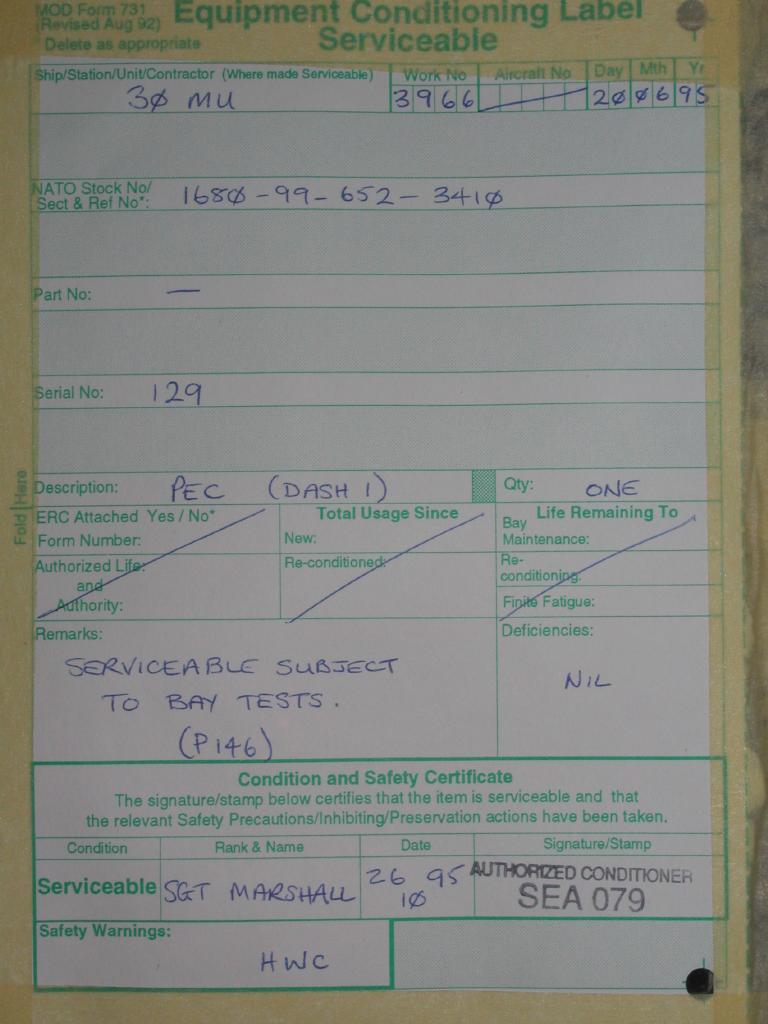 MOD Form 731
(Revised Aug 92)
Delete as appropriate
Equipment Conditioning Label
Serviceable
Ship/Station/Unit/Contractor (Where made Serviceable)
3Ø MU
Work No
3966
Aircraft No
Day Mth Yr
2Ø Ø6 95
NATO Stock No/
Sect & Ref No*:
168Ø-99-652-341Ø
Part No: —
Serial No: 129
Fold Here
Description: PEC (DASH 1)
Qty: ONE
ERC Attached Yes / No*
Form Number:
Authorized Life:
and
Authority:
Total Usage Since
New:
Re-conditioned:
Life Remaining To
Bay
Maintenance:
Re-
conditioning:
Finite Fatigue:
Remarks:
SERVICEABLE SUBJECT
TO BAY TESTS.
(P146)
Deficiencies:
NIL
Condition and Safety Certificate
The signature/stamp below certifies that the item is serviceable and that
the relevant Safety Precautions/Inhibiting/Preservation actions have been taken.
Condition Rank & Name Date Signature/Stamp
Serviceable
SGT MARSHALL
26 95
1Ø
AUTHORIZED CONDITIONER
SEA 079
Safety Warnings:
HWC